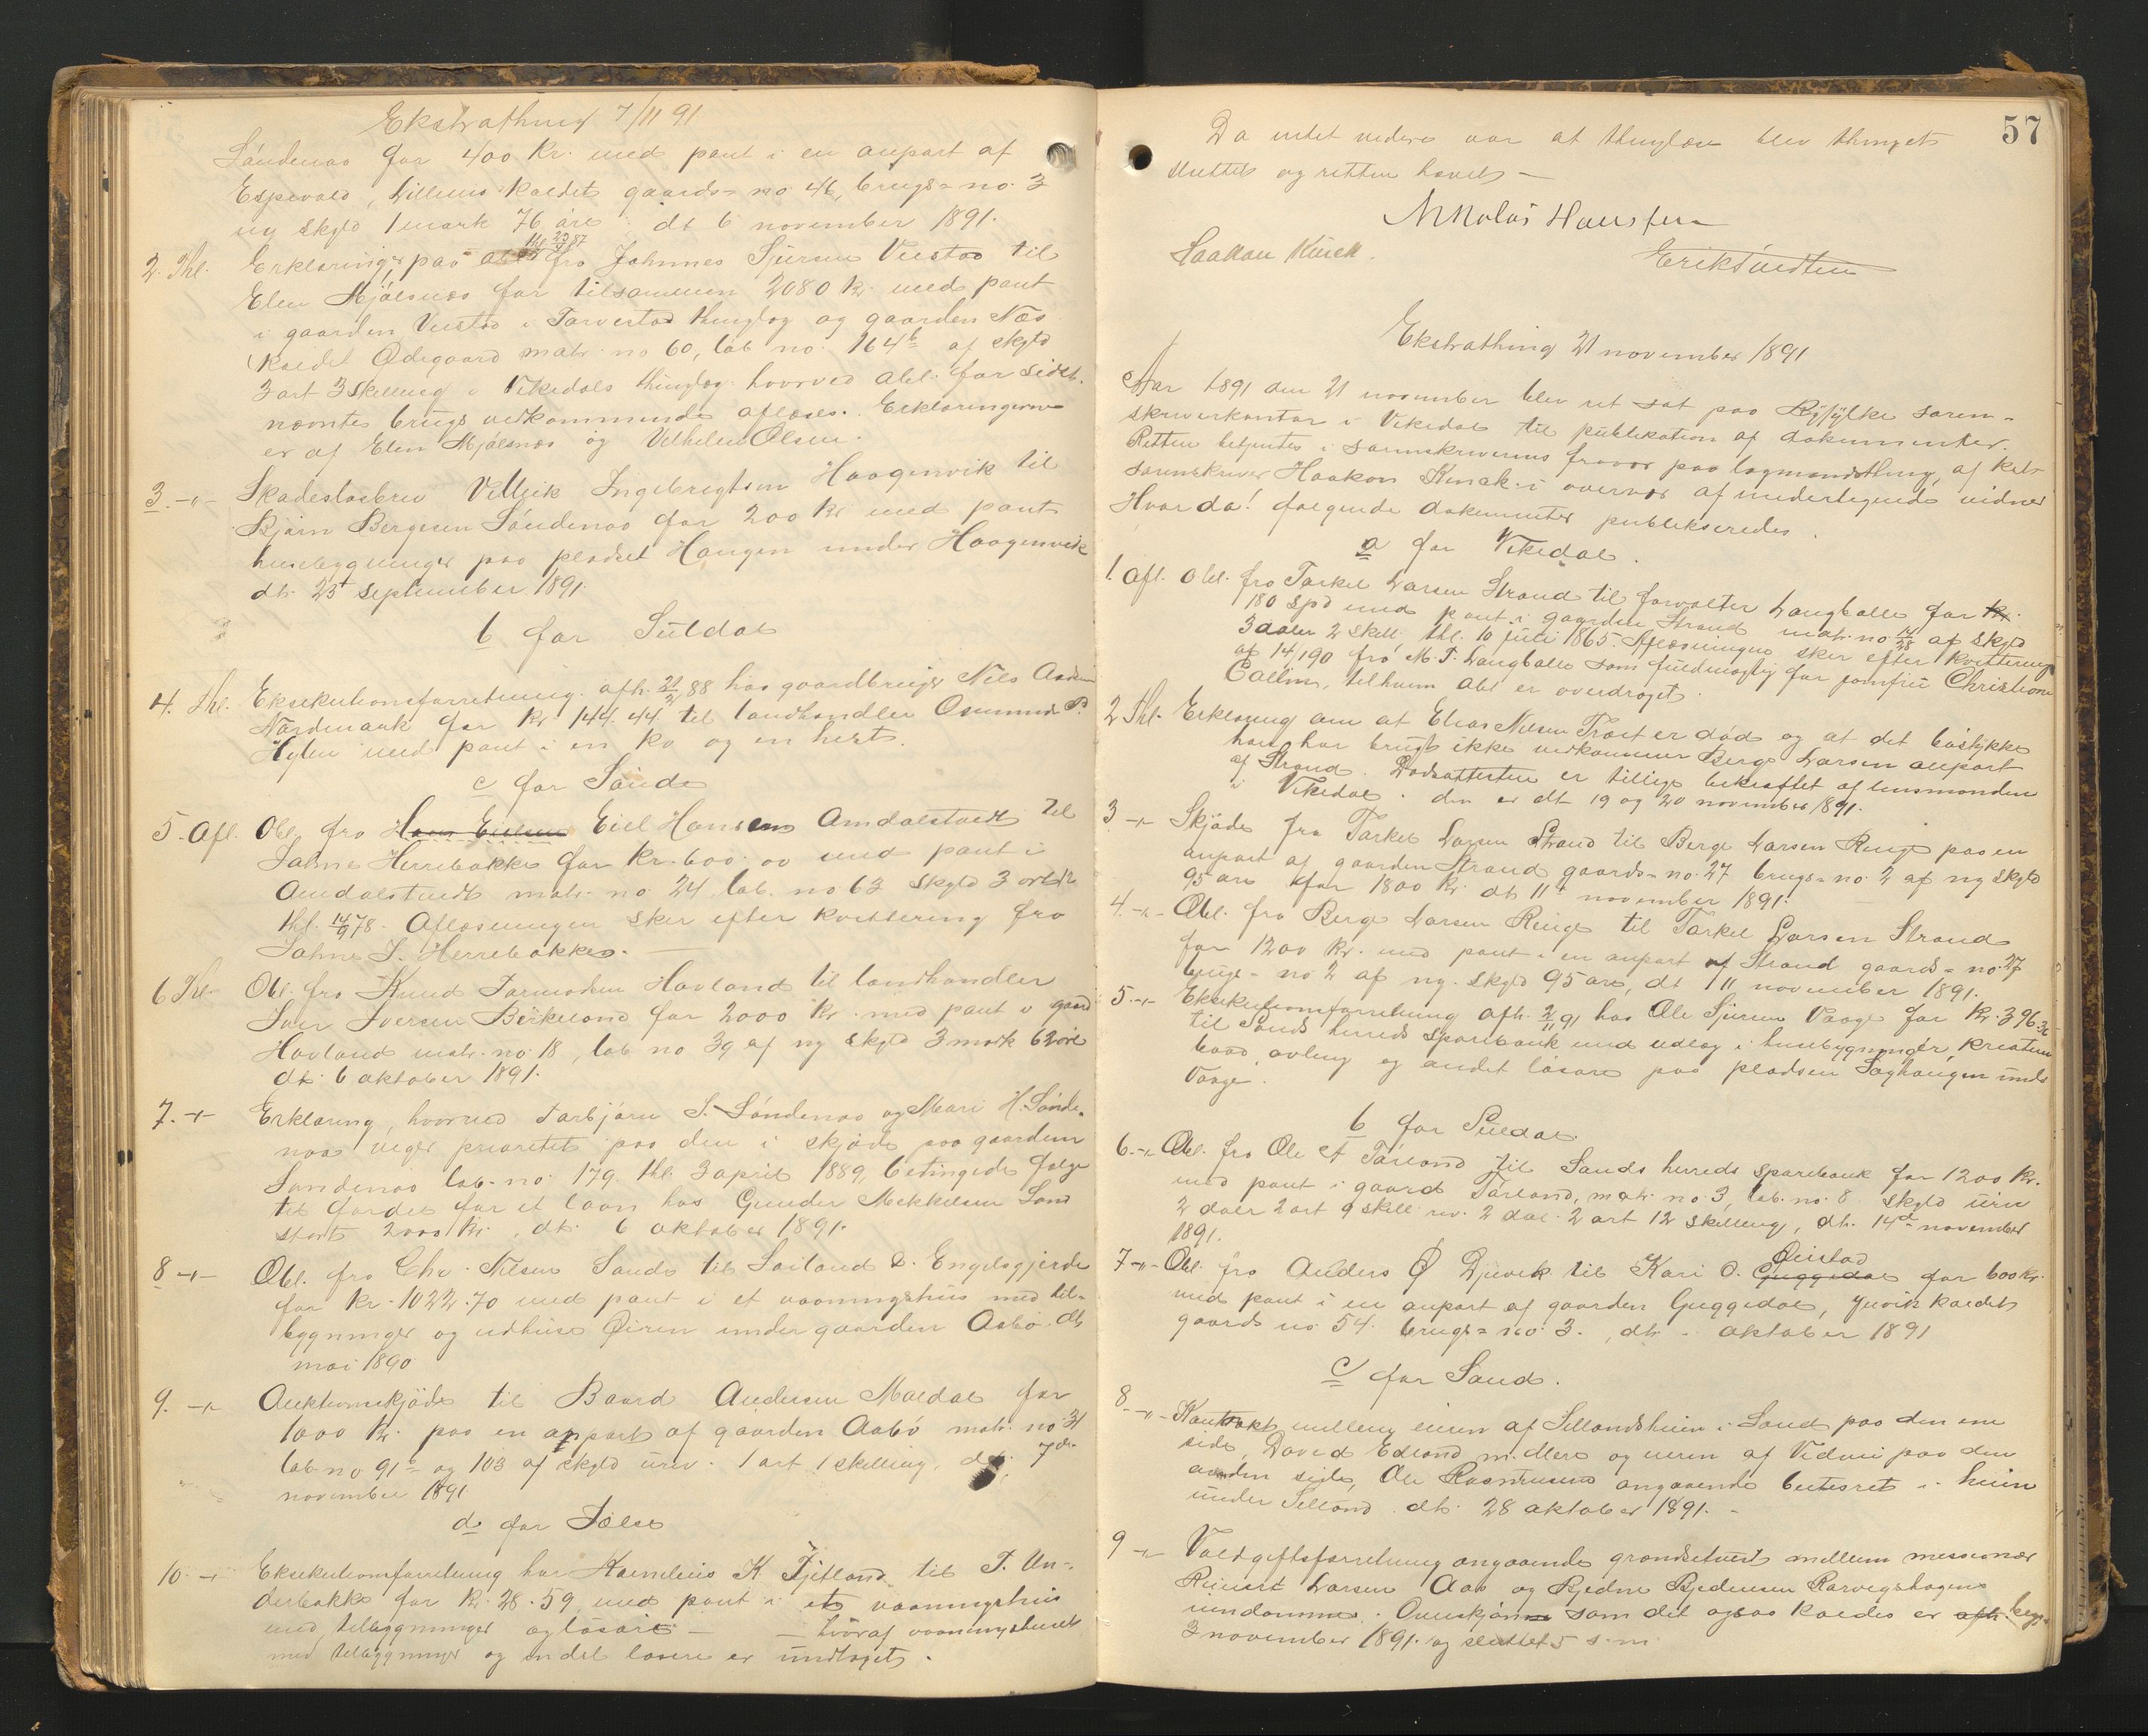 Ekstrathing 7/11 91
Søndenaa for 400 Kr. med pant i en anpart af
Espevold, Lillemo kaldet gaards=no 46, brugs=no. 3
ny skyld 1 mark 76 øre dt 6 november 1891.
2. Thl. Erklæringer paa obl. thl. 23/9 87 fra Johannes Sjursen Veestøe til
Elen Mjølsnes for tilsammen 2080 kr. med pant
i gaarden Veestøe i Torvestad thinglag og gaarden Næs
kaldt Ødegaard matr. no 60, løb no. 164b af skyld
3 ort 3 skilling i Vikedals thinglag hvorved obl. for sidst-
nævnte brugs vedkommende aflæses. Erklæringerne
er af Elen Mjølsnes og Vilhelm Olsen.
3 -"- Skadesløsbrev Vellik Ingebrigtsen Haagenvik til
Bjørn Bergesen Søndenaa for 200 kr. med pant
husebygninger paa pladset Haugen under Haagenvik
dt. 25t september 1891.
b for Suldal
4. Thl. Eksekutionsforretning afh. 21/2 88 hos gaardbruger Nils
Nordmark for kr 144.44. til landhandler Osmund P.
Hylen med pant i en ko og en hest.
c for Sande
5. Afl. Obl. fra Hans Eielsen Eiel Hansen Amdalstvedt til
Salme Herrebakke for kr. 600.00 med pant i
Amdalstvedt matr. no. 24 løb. no 63 skyld 3 ort 12
thl. 14/9 78. Aflæsningen sker efter kvittering fra
Salme S. Herrebakke.
6 Thl. Obl. fra Knud Tormodsen Havland til landhandler
Iver Iversen Birkeland for 2000 kr. med pant i gaard
Havland matr. no. 18, løb no 39 af ny skyld 3 mark 62 øre
dt. 6 oktober 1891.
7. -"- Erklæring, hvorved Torbjørn S. Søndenaa og Mari H. Sønde-
naa viger prioritet paa den i skjøde paa gaarden
Søndenaa løb. no. 179. thl. 3 april 1889, betingede følge
til fordel for et laan hos Gunder Mekkelsen Sand
stort 2000 kr., dt. 6 oktober 1891.
8 -"- Obl. fra Chr. Nilsen Sande til Søiland & Engelsgjerde
for kr. 1022.70 med pant i et vaaningshus med til-
bygninger og udhuse Øiren under gaarden Aabø. dt.
mai 1890
9. -"- Auktionsskjøde til Baard Andersen Moldal for
1000 kr. paa en anpart af gaarden Aabø matr. no. 31
løb no 91b og 103 af skyld urev. 1 ort 1 skilling, dt. 7de
november 1891
d for Jelse
10 -"- Eksekutionsforretning hos Kornelius K. Fjetland til T. Un-
derbakke for kr. 28.59 med pant i et vaaningshus
med tilbygninger og løsøre — hvoraf vaaningshuset
med tilbygninger og en del løsøre er undtaget.
57
Da intet videre var at thinglæse blev thinget
sluttet og retten hævet —
Nikolai Hansen
Haakon Kinck.
Erik Sundten
Ekstrathing 21 november 1891
Aar 1891 den 21 november blev ret sat paa Ryfylke soren-
skriverkontor i Vikedal til publikation af dokumenter.
Retten betjentes i sorenskriverens fravær paa lagmandsthing, af kst.
sorenskriver Haakon Kinck i overvær af undertegnede vidner
Hvorda! følgende dokumenter publiseredes.
a for Vikedal.
1. Afl. Obl. fra Torkel Larsen Strand til forvalter Langballe for kr.
180 spd med pant i gaarden Strand matr. no. 14/28 af skyld
3 daler 2 skill. thl. 10 juli 1865. Aflæsningen sker efter kvittering
af 14/1 90 fra M. T. Langballe som fuldmægtig for jomfru Christiane
Callin, til hvem obl er overdraget.
2 Thl. Erklæring om at Elias Nilsen Træet er død og at det bøstykke
han har brugt ikke vedkommer Berge Larsen anpart
af Strand. Dødsattesten er tillige bekræftet af lensmanden
i Vikedal. den er dt 19 og 20 november 1891.
3 -"- Skjøde fra Torkel Larsen Strand til Berge Larsen Ringe paa en
anpart af gaarden Strand gaards=no. 27 brugs=no. 2 af ny skyld
95 øre for 1800 kr. dt 11t november 1891.
4. -"- Obl. fra Berge Larsen Ringe til Torkel Larsen Strand
for 1200 kr. med pant i en anpart af Strand gaards=no. 27
brugs=no 2 af ny skyld 95 øre, dt 11 november 1891.
5. -"- Eksekutionsforretning afh. 2/11 91 hos Ole Sjursen Vaage for kr. 396.36
til Sands herreds sparebank med udlæg i husebygninger, kreaturer
baad, avling og andet løsøre paa pladsen Saghaugen under
Vaage.
b for Suldal
6. -"- Obl. fra Ole A Tørland til Sands herreds sparebank for 1200 kr.
med pant i gaard Tørland, matr. no. 3, løb. no. 8 skyld urev
2 daler 2 ort 9 skill rev. 2 dal. 2 ort 12 skilling, dt. 14de november
1891.
7 -"- Obl. fra Anders Ø Djuvik til Kari O. Guggedal Øistad for 600 kr.
med pant i en anpart af gaarden Guggedal, Juvik kaldet
gaards no 54. brugs=no. 3., dt. oktober 1891
c for Sand.
8 -"- Kontrakt mellem eieren af Sellandsheien i Sand paa den ene
side, David Edland m. flere og eieren af Vidvei paa den
anden side, Ole Rasmussen angaaende beitesret i heien
under Selland. dt. 28 oktober 1891. -
9 -"- Voldgiftsforretning angaaende grændsetvist mellem missionær
Reinert Larsen Aas og Bjedne Bjednesen Rørvegshagens
eiendomme. Ouerskjønnet som det ogsaa kaldes er afh. beg.
3 november 1891. og sluttet 5 s. m.